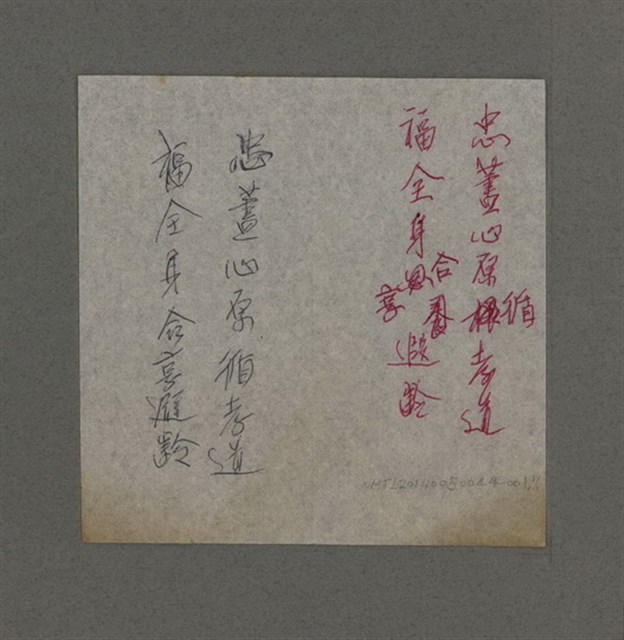 忠藎心原循孝道
福全身合享遐齡
忠藎心原循孝道
福全身合享遐齡